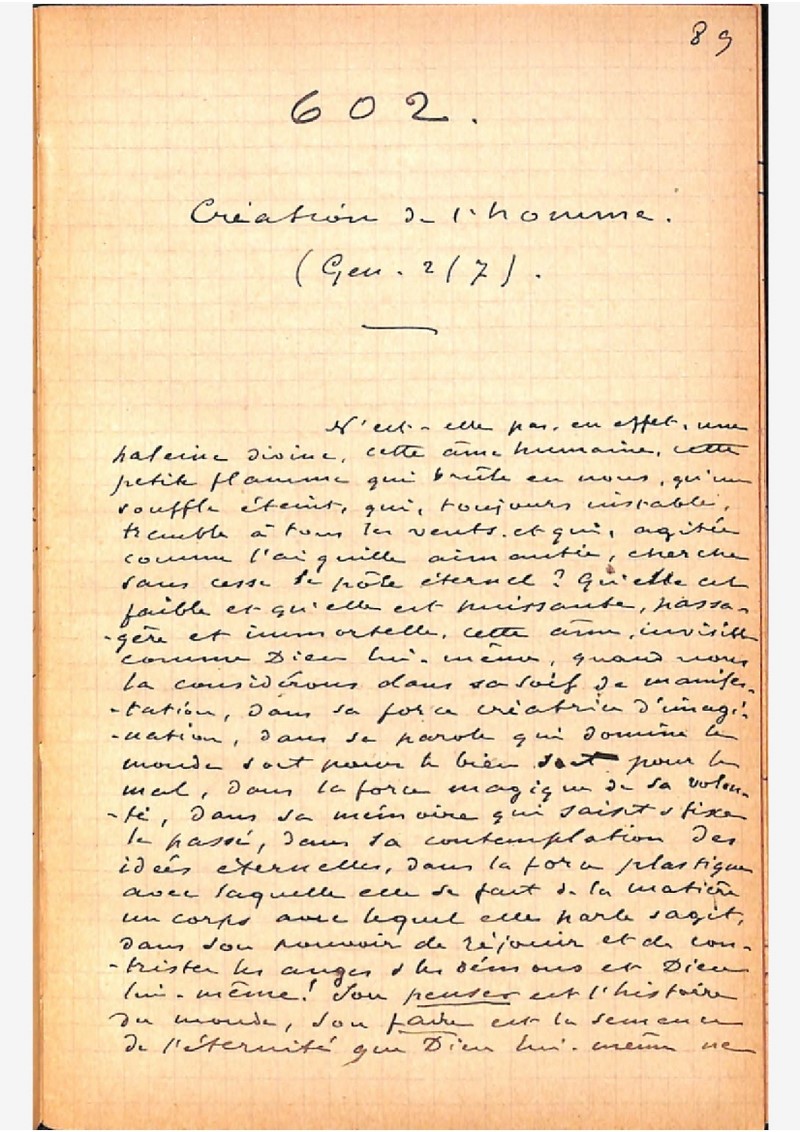 89
602.
Création de l'homme.
(Gen. 2/7).
N'est-elle pas, en effet, une
haleine divine, cette âme humaine, cette
petite flamme qui brûle en nous, qu'un
souffle éteint, qui, toujours instable,
tremble à tous les vents, et qui, agitée
comme l'aiguille aimantée, cherche
sans cesse le pôle éternel? Qu'elle est
faible et qu'elle est puissante, passa-
-gère et immortelle, cette âme, invisible
comme Dieu lui-même, quand nous
la considérons dans sa soif de manifes-
-tation, dans sa force créatrice d'imagi-
-nation, dans sa parole qui domine le
monde soit pour le bien soit pour le
mal, dans la force magique de sa volon-
-té, dans sa mémoire qui saisit & fixe
le passé, dans sa contemplation des
idées éternelles, dans la force plastique
avec laquelle elle se fait de la matière
un corps avec lequel elle parle & agit,
dans son pouvoir de réjouir et de con-
-trister les anges & les démons et Dieu
lui-même! Son penser est l'histoire
du monde, son faire est la semence
de l'éternité que Dieu lui-même ne